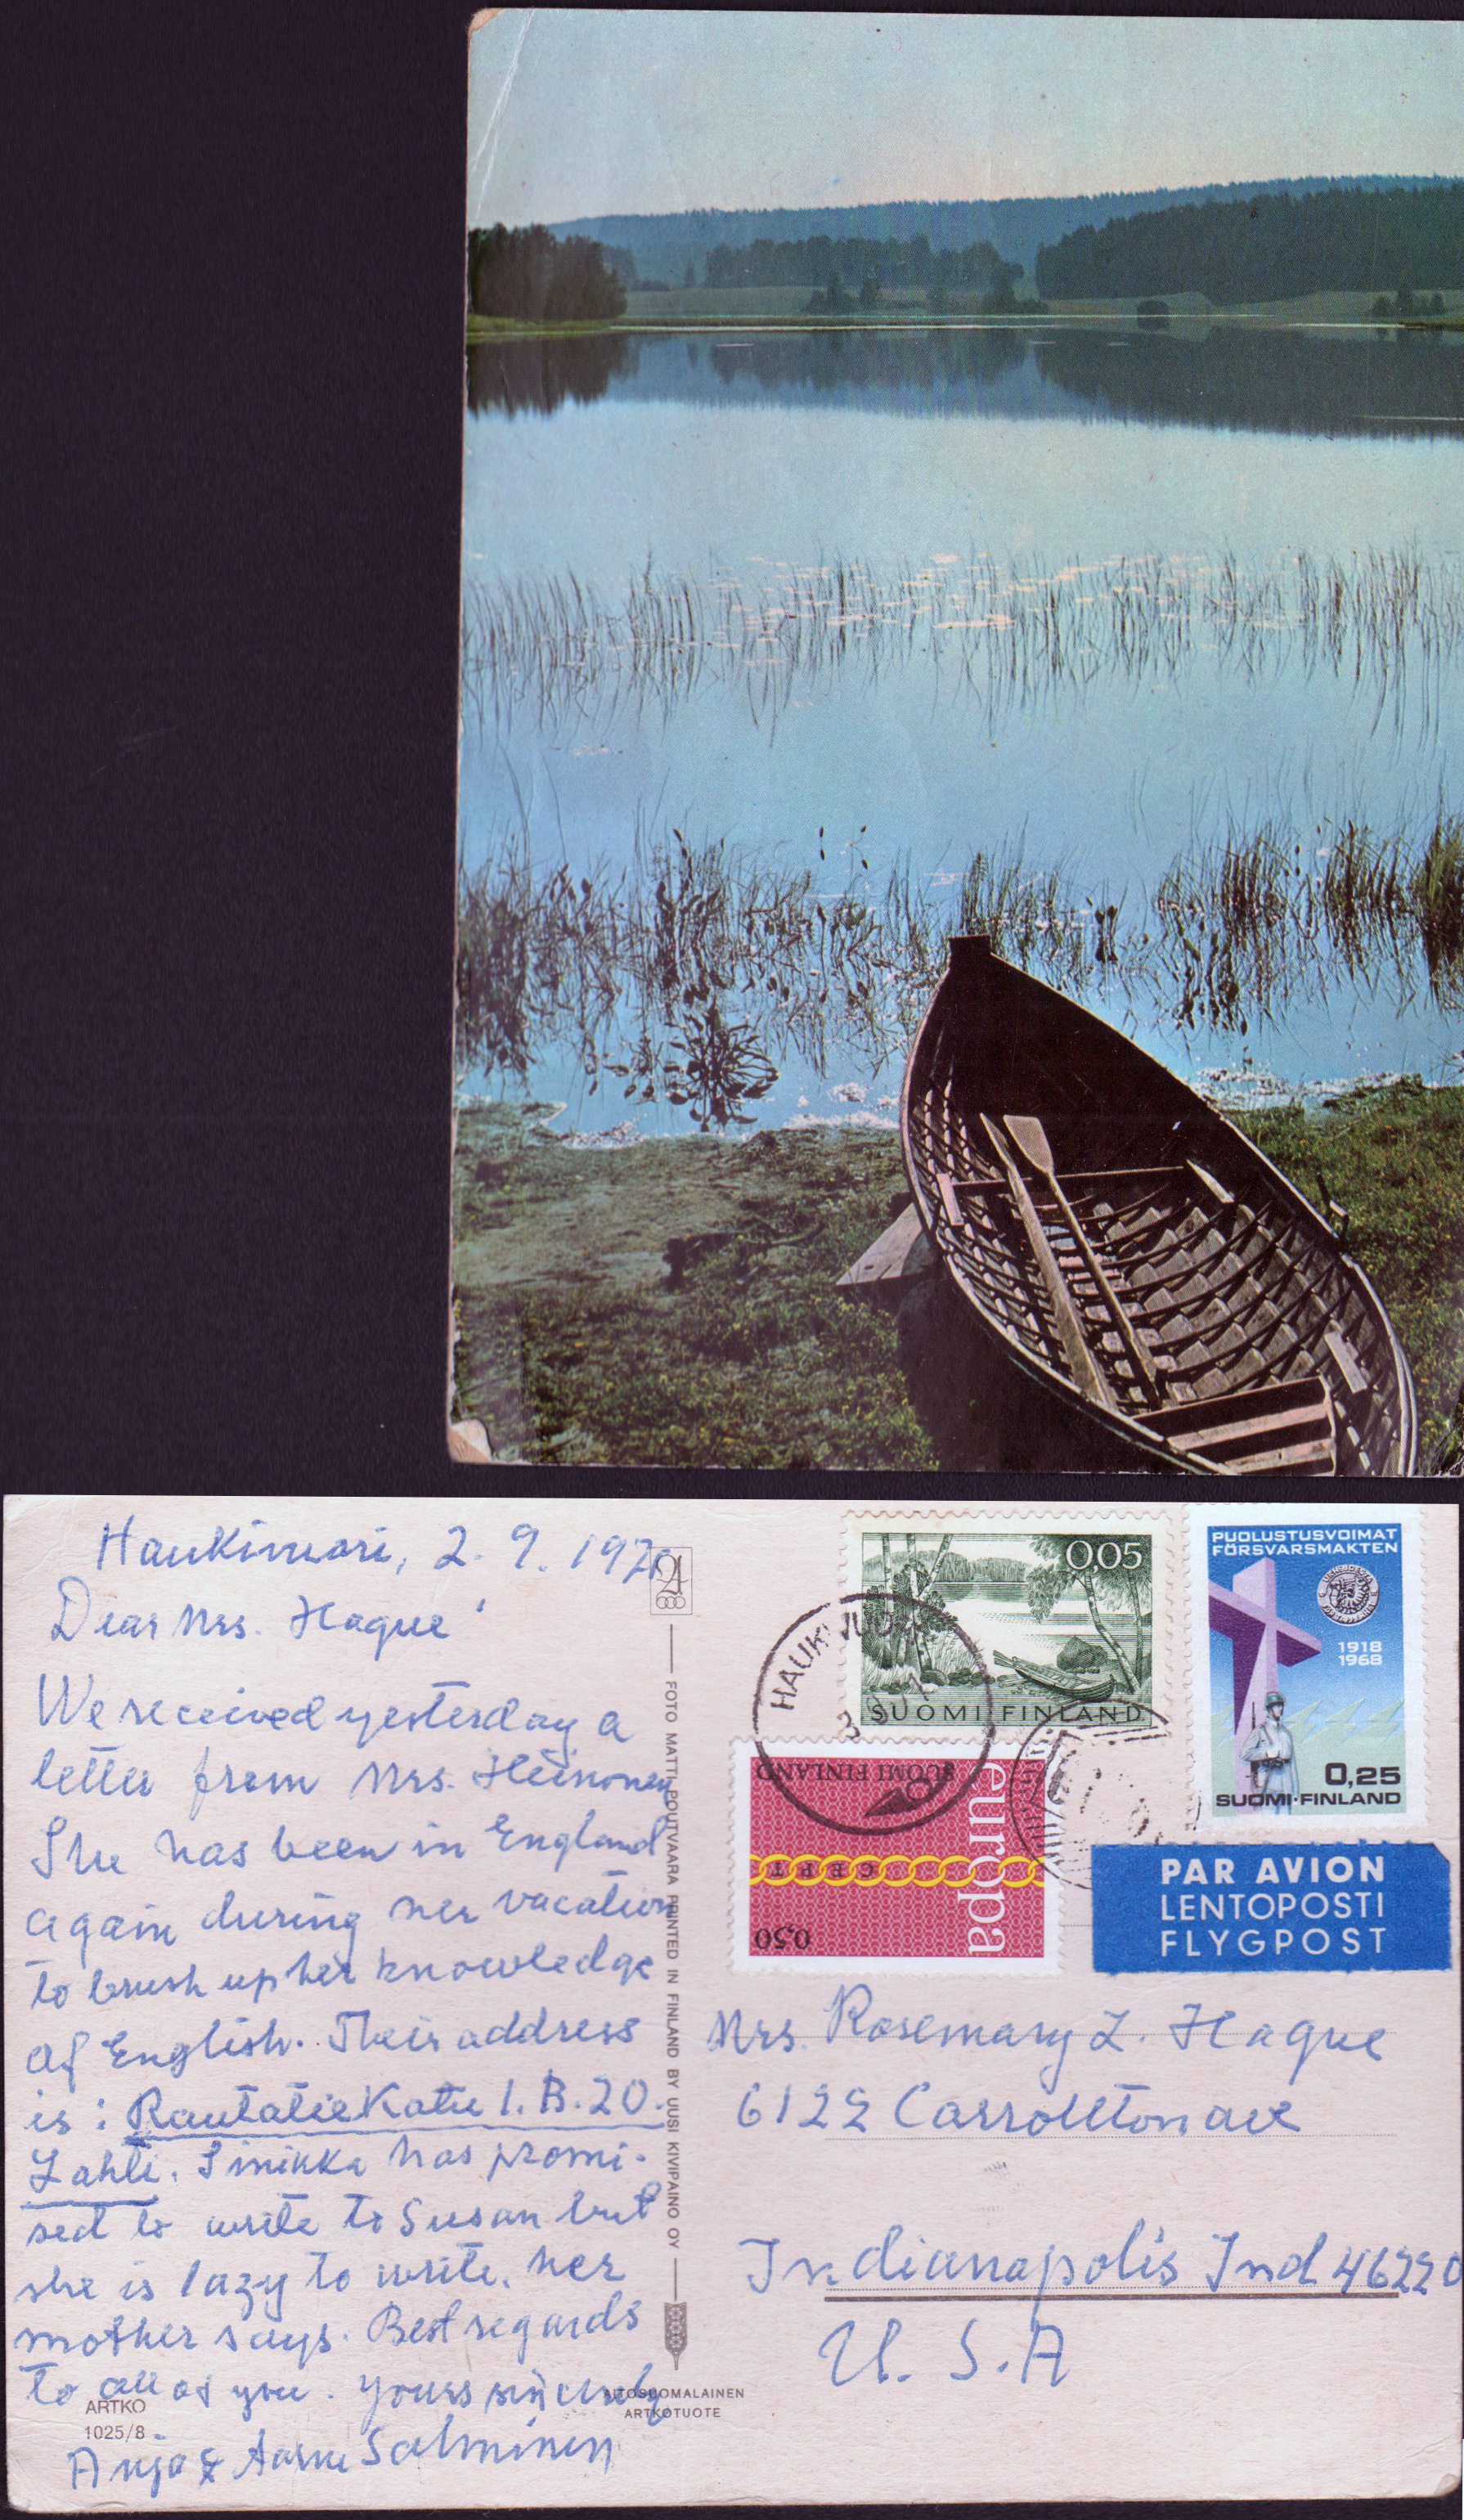 Haukivuori, 2.9.1971
Dear Mrs. Hague
We received yesterday a
letter from Mrs. Heinonen
She has been in England
again during her vacation
to brush up her knowledge
of English. Their address
is: Rautatiekatu 1.B.20.
Lahti. Sinikka has promi-
sed to write to Susan but
she is lazy to write, her
mother says. Best regards
to all of you. Yours sincerely
Anja & Salminen
ARTKO
1025/8
FOTO MATTI POUTVAARA PRINTED IN FINLAND BY UUSI KIVIPAINO OY
AITOSUOMALAINEN
ARTKOTUOTE
0,05
SUOMI FINLAND
PUOLUSTUSVOIMAT
FÖRSVARSMAKTEN
1918
1968
0,25
SUOMI·FINLAND
SUOMI FINLAND
europa
CEPT
0,50
HAUKIVUORI
PAR AVION
LENTOPOSTI
FLYGPOST
Mrs. Rosemary L. Hague
6122 Carrollton ave
Indianapolis Ind 46220
U.S.A